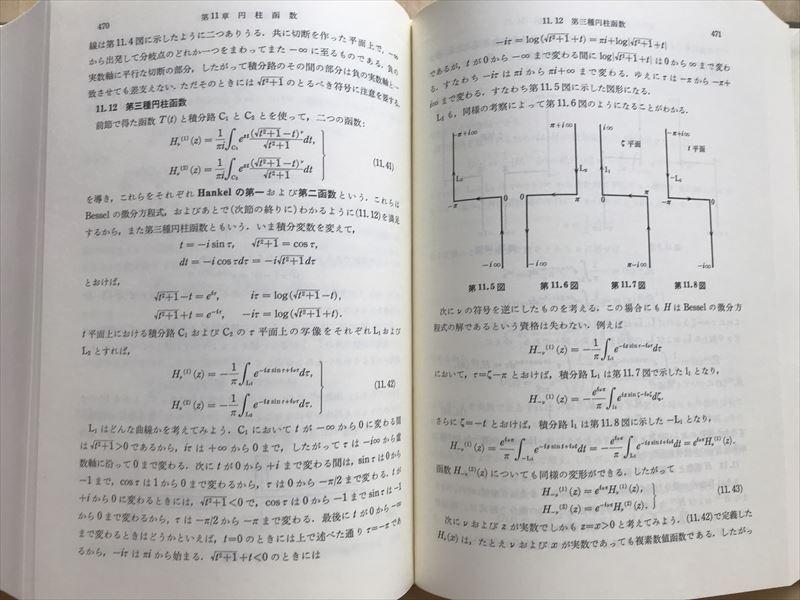 470
第11章 円 柱 函 数
線は第11.4図に示したように二つありうる．共に切断を作った平面上で，−∞
から出発して分岐点のどれか一つをまわってまた −∞ に至るものである．負の
実数軸に平行な切断の部分，したがって積分路のその間の部分は負の実数軸と一
致させても差支えない．ただそのときには √t²+1 のとるべき符号に注意を要する．
11.12 第三種円柱函数
前節で得た函数 T(t) と積分路 C₁ と C₂ とを使って，二つの函数:
Hᵥ⁽¹⁾(z) = 1/πi ∫_C₁ e^{zt} (√t²+1−t)^ν/√t²+1 dt,
Hᵥ⁽²⁾(z) = 1/πi ∫_C₂ e^{zt} (√t²+1−t)^ν/√t²+1 dt
(11.41)
を導き，これらをそれぞれ Hankel の第一 および 第二函数という．これらは
Bessel の微分方程式，およびあとで(次節の終りに)わかるように(11.12)を満足
するから，また第三種円柱函数ともいう．いま積分変数を変えて，
t = −i sin τ, √t²+1 = cos τ,
dt = −i cos τdτ = −i√t²+1 dτ
とおけば，
√t²+1−t = e^{iτ}, iτ = log(√t²+1−t),
√t²+1+t = e^{−iτ}, −iτ = log(√t²+1+t).
t 平面上における積分路 C₁ および C₂ の τ 平面上の写像をそれぞれ L₁ および
L₂ とすれば，
Hᵥ⁽¹⁾(z) = −1/π ∫_L₁ e^{−iz sin τ+iντ}dτ,
Hᵥ⁽²⁾(z) = −1/π ∫_L₂ e^{−iz sin τ+iντ}dτ.
(11.42)
L₁ はどんな曲線かを考えてみよう．C₁ において t が −∞ から 0 に変わる間
は √t²+1>0 であるから，iτ は +∞ から 0 まで，したがって τ は −i∞ から虚
数軸に沿って 0 まで変わる．次に t が 0 から +i まで変わる間は，sin τ は 0 から
−1 まで，cos τ は 1 から 0 まで変わるから，τ は 0 から −π/2 まで変わる．t が
+i から 0 に変わるときには，√t²+1<0 で，cos τ は 0 から −1 まで sin τ は −1
から 0 まで変わるから，τ は −π/2 から −π まで変わる．最後に t が 0 から −∞
まで変わるときはどうかといえば，t=0 のときには上で述べた通り τ=−π であ
るから，−iτ は πi から始まる．√t²+1+t<0 のときには
11.12 第三種円柱函数
471
−iτ = log(√t²+1+t) = πi+log|√t²+1+t|
であるが，t が 0 から −∞ まで変わる間に log|√t²+1+t| は 0 から ∞ まで変わ
る．すなわち −iτ は πi から πi+∞ まで変わる．ゆえに τ は −π から −π+
i∞ まで変わる．すなわち第11.5図に示した図形になる．
L₂ も，同様の考察によって第11.6図のようになることがわかる．
−π+i∞
L₁
−π
0
−i∞
π+i∞
L₂
0
π
−i∞
ζ 平面
i∞
l₁
0
π
π−i∞
−π+i∞
t 平面
−L₁
−π
0
−i∞
第11.5図
第11.6図
第11.7図
第11.8図
次に ν の符号を逆にしたものを考える．この場合にも H は Bessel の微分方
程式の解であるという資格は失わない．例えば
H₋ᵥ⁽¹⁾(z) = −1/π ∫_L₁ e^{−iz sin τ−iντ}dτ
において，τ=ζ−π とおけば，積分路 L₁ は第11.7図で示した l₁ となり，
H₋ᵥ⁽¹⁾(z) = −e^{iνπ}/π ∫_l₁ e^{iz sin ζ−iνζ}dζ.
さらに ζ=−t とおけば，積分路 l₁ は第11.8図に示した −L₁ となり，
H₋ᵥ⁽¹⁾(z) = e^{iνπ}/π ∫_−L₁ e^{−iz sin t+iνt}dt = −e^{iνπ}/π ∫_L₁ e^{−iz sin t+iνt}dt = e^{iνπ}Hᵥ⁽¹⁾(z).
函数 H₋ᵥ⁽²⁾(z) についても同様の変形ができる．したがって
H₋ᵥ⁽¹⁾(z) = e^{iνπ}Hᵥ⁽¹⁾(z),
H₋ᵥ⁽²⁾(z) = e^{−iνπ}Hᵥ⁽²⁾(z).
(11.43)
次に ν および z が実数でしかも z=x>0 と考えてみよう．(11.42)で定義した
Hᵥ(x) は，たとえ ν および x が実数であっても複素数値函数である．したがっ